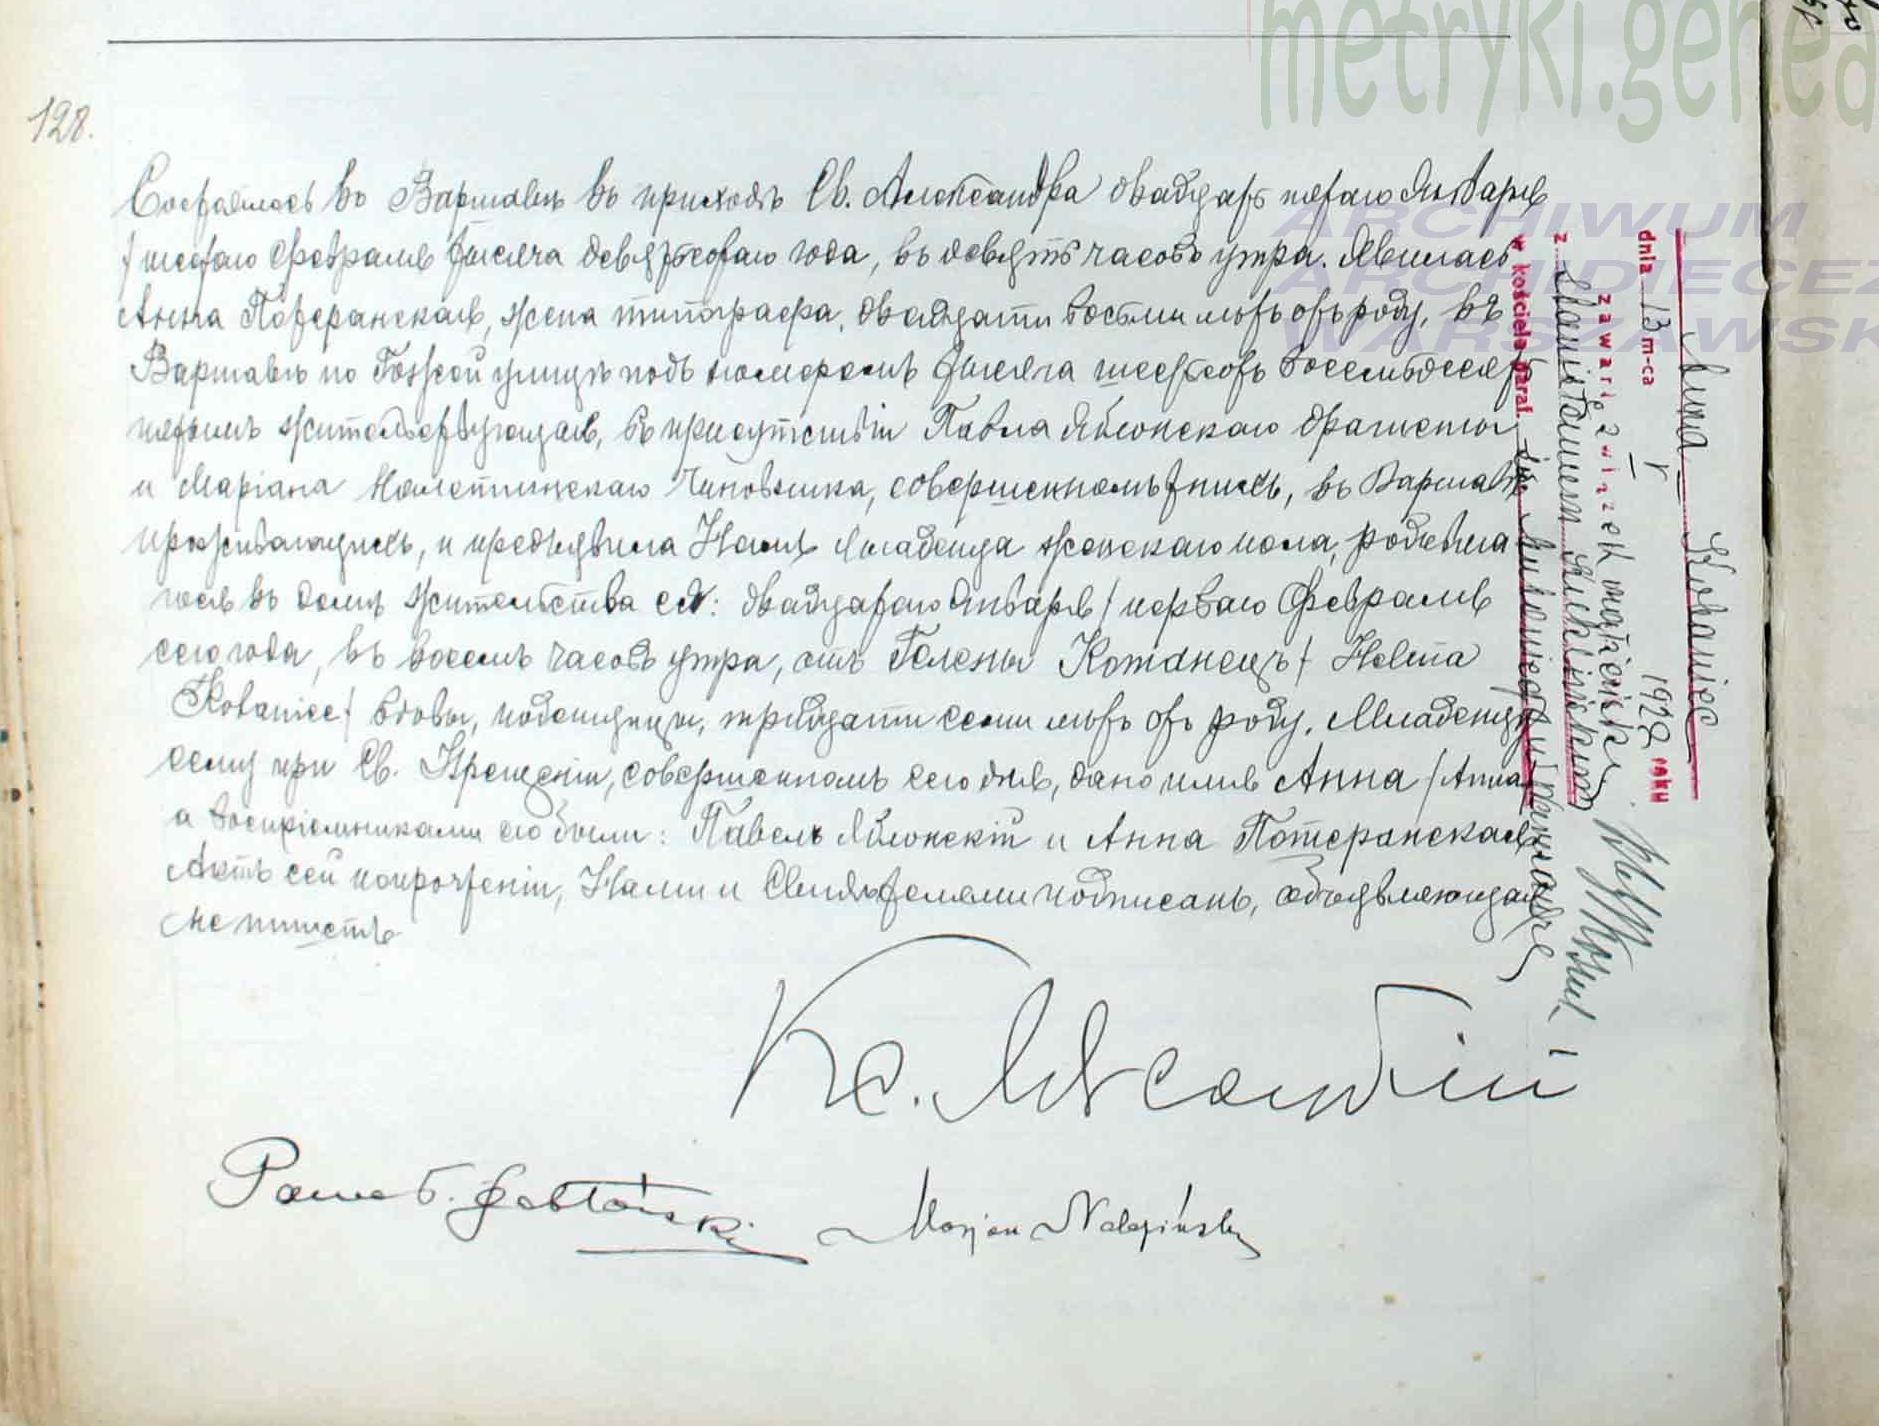 metryki.genea
ARCHIWUM
ARCHIDIECEZ
WARSZAWSK
128.
Состоялось въ Варшавѣ въ приходѣ Св. Александра двадцать пятаго Января
/шестаго Февраля/ тысяча девятьсотаго года, въ девять часовъ утра. Явилась
Анна Потеранская, жена типографа, двадцати восьми лѣтъ отъ роду, въ
Варшавѣ по улицѣ подъ номеромъ тысяча шестьсотъ восемьдесятъ
пятымъ жительствующая, въ присутствіи Павла Яблонскаго
и Маріана чиновника, совершеннолѣтнихъ, въ Варшавѣ
проживающихъ, и предъявила Намъ младенца женскаго пола, родивша
гося въ домѣ жительства ея: двадцатаго Января / перваго Февраля
сего года, въ восемь часовъ утра, отъ Гелены Котанецъ / Helena
Kotaniec / вдовы, поденщицы, тридцати семи лѣтъ отъ роду. Младенцу
сему при Св. Крещеніи, совершенномъ сего дня, дано имя Анна / Anna
а воспріемниками его были: Павелъ Яблонскій и Анна Потеранская
Актъ сей по прочтеніи, Нами и Свидѣтелями подписанъ, объявляющая
не пишетъ
Кс.
Paweł Jabłoński
Marjan
Anna Kotaniec
dnia 13 m-ca V 1928 roku
zawarła związek małżeński
z Stanisławem
w kościele paraf.